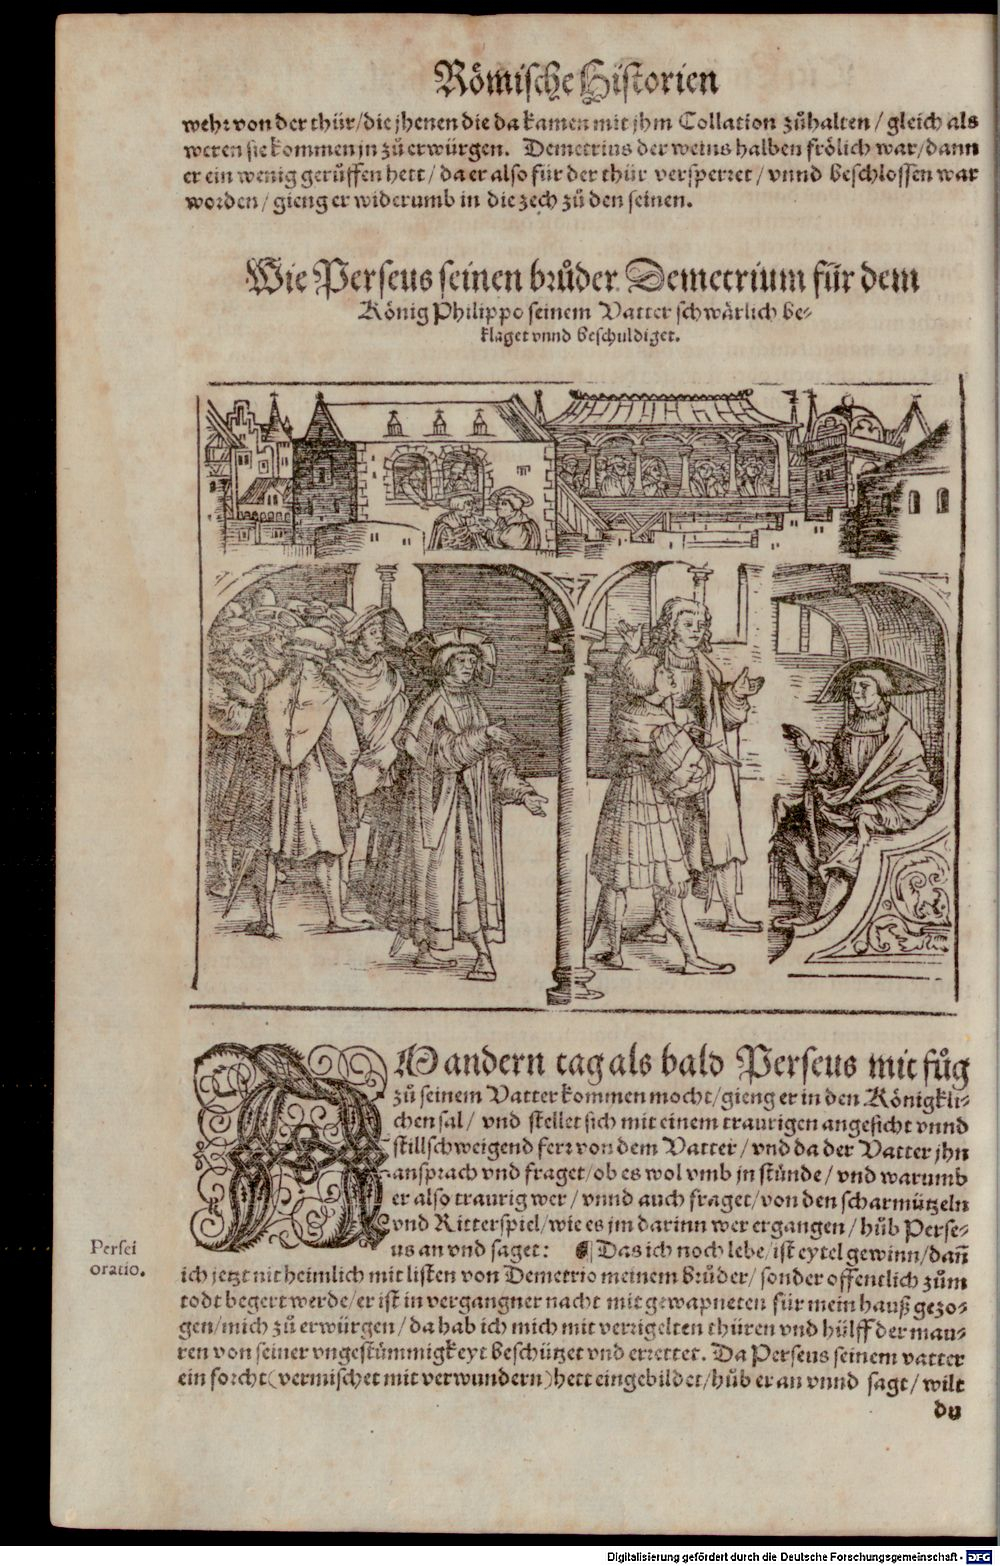 Römische Historien
wehr von der thür/die jhenen die da kamen mit jhm Collation zůhalten/gleich als
weren sie kommen jn zů erwürgen. Demetrius der weins halben frölich war/dann
er ein wenig gerůffen hett/da er also für der thür versperret/vnnd beschlossen war
worden/gieng er widerumb in die zech zů den seinen.
Wie Perseus seinen brůder Demetrium für dem
König Philippo seinem Vatter schwärlich be-
klaget vnnd beschuldiget.
AM andern tag als bald Perseus mit fůg
zů seinem Vatter kommen mocht/gieng er in den Königkli-
chen sal/vnd stellet sich mit einem traurigen angesicht vnnd
stillschweigend ferr von dem Vatter/vnd da der Vatter jhn
ansprach vnd fraget/ob es wol vmb jn stünde/vnd warumb
er also traurig wer/vnnd auch fraget/von den scharmützeln
vnd Ritterspiel/wie es jm darinn wer ergangen/hůb Perse-
us an vnd saget: ¶ Das ich noch lebe/ist eytel gewinn/dañ
Persei
oratio.
ich jetzt nit heimlich mit listen von Demetrio meinem brůder/sonder offentlich zům
todt begert werde/er ist in vergangner nacht mit gewapneten für mein hauß gezo-
gen/mich zů erwürgen/da hab ich mich mit verrigelten thüren vnd hülff der mau-
ren von seiner vngestümmigkeyt beschützet vnd errettet. Da Perseus seinem vatter
ein forcht(vermischet mit verwundern)hett eingebildet/hůb er an vnnd sagt/wilt
du
Digitalisierung gefördert durch die Deutsche Forschungsgemeinschaft - DFG